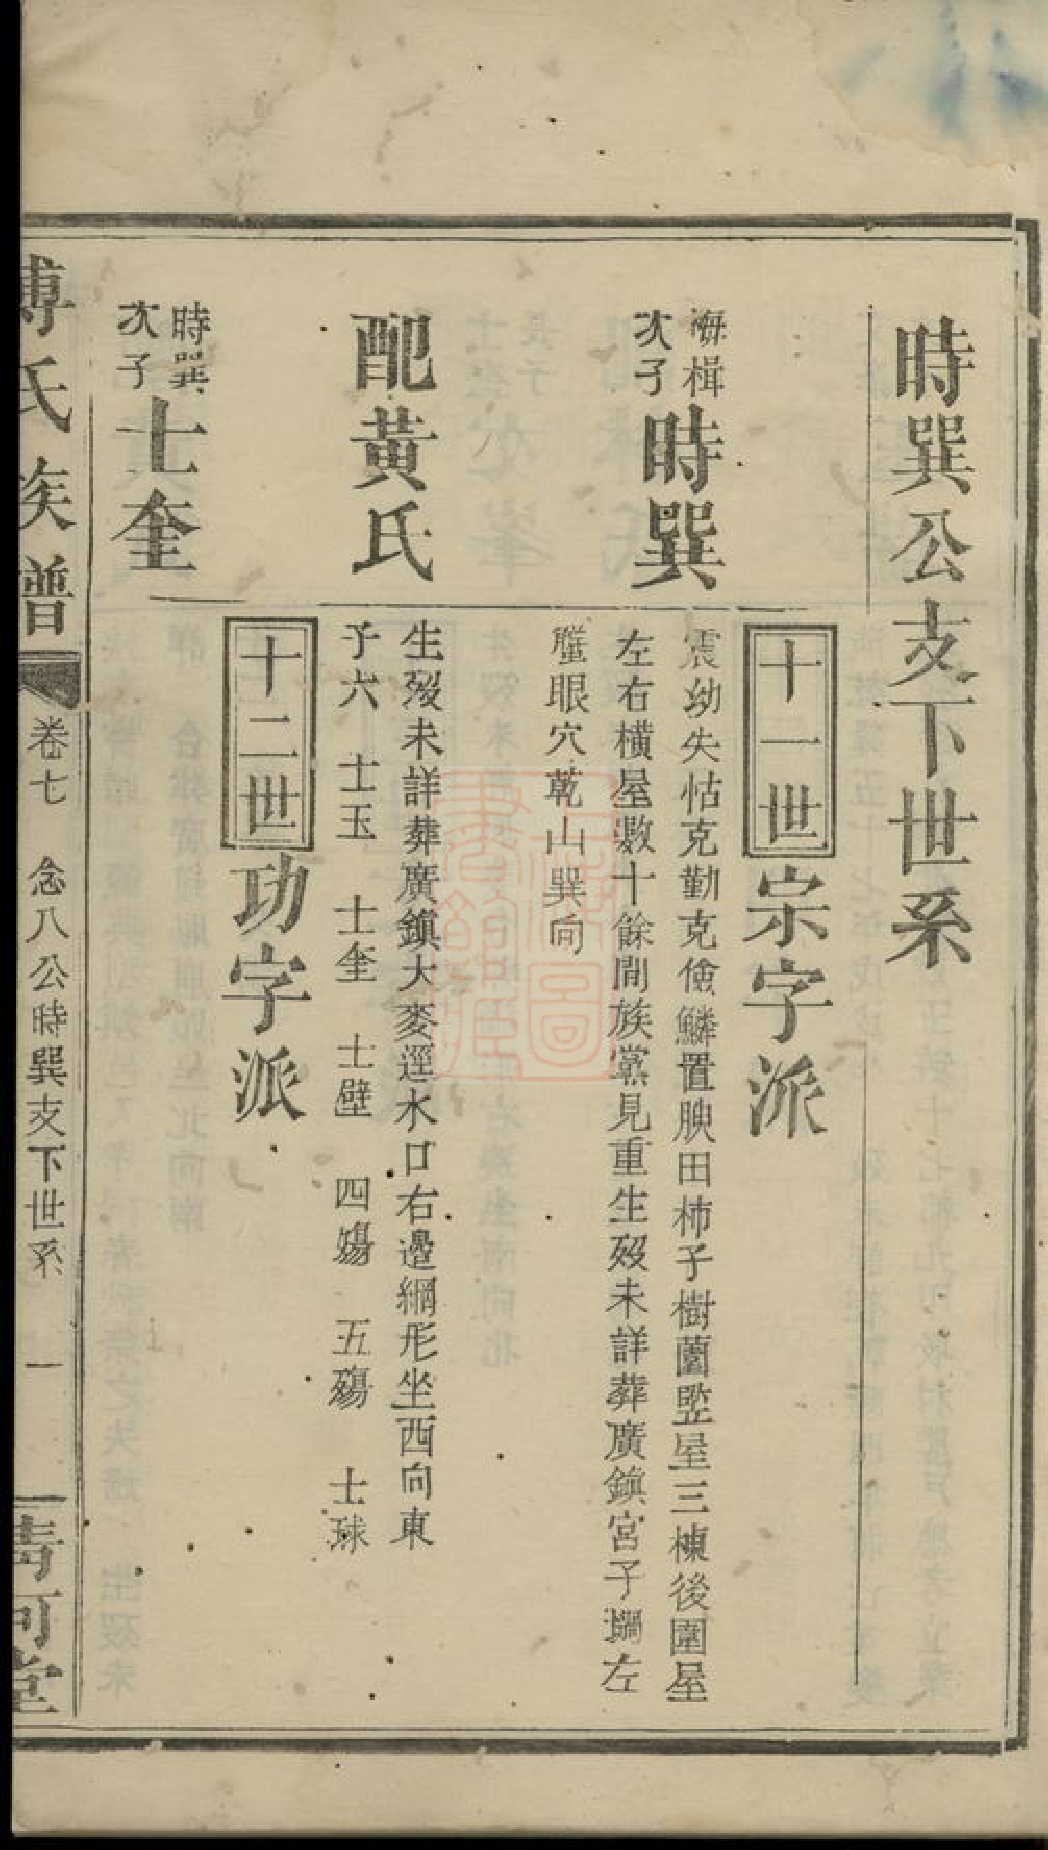 時巽公支下世系
十一世 宗字派
楫次子 時巽
震幼失怙克勤克儉鱗置腴田柿子樹園竪屋三棟後圍屋
左右橫屋數十餘間族黨見重生歿未詳葬廣鎮宮子壩左
蟹眼穴乾山巽向
配黃氏
生歿未詳葬廣鎮大麥逕水口右邊網形坐西向東
子六 士玉 士奎 士壁 四殤 五殤 士球
十二世 功字派
時巽次子 士奎
傅氏族譜 卷七 念八公時巽支下世系 一 清河堂